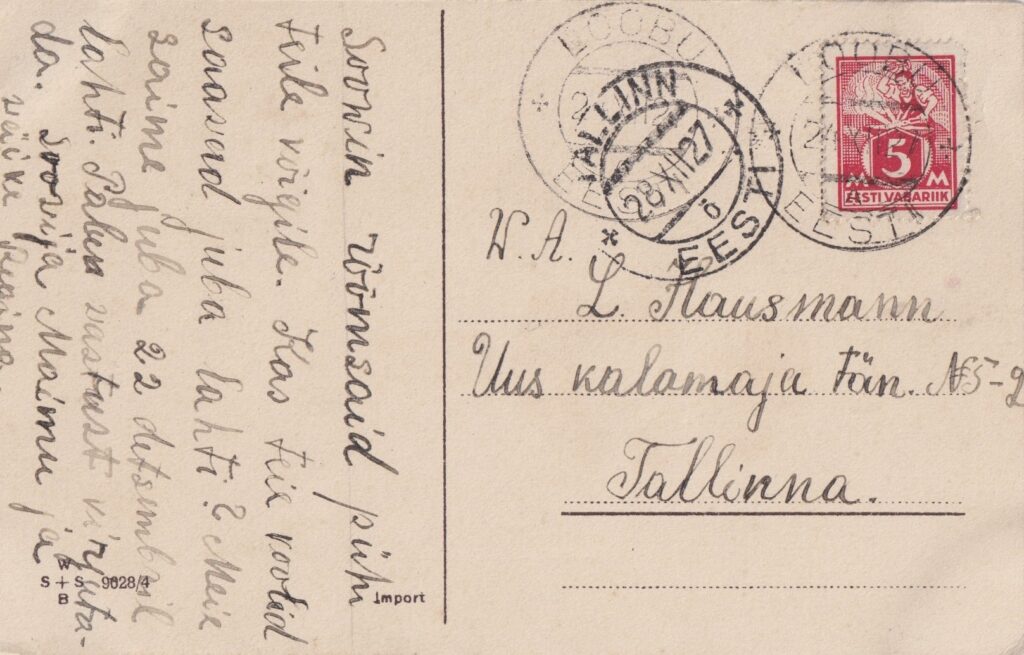 Soovin rõõmsaid pühi
teile kõigile. Kas teie koolid
saavad juba lahti? Meie
saime juba 22 detsembril
lahti. Palun vastust kirjuta-
da. Soovija Maimu ja
väike Regina.
W
S+S 9028/4
B
Import
LOOBU
EESTI
TALLINN
28 XII 27
6
EESTI
LOOBU
EESTI
5
M M
EESTI VABARIIK
W. A.
L. Hausmann
Uus kalamaja tän. №5-9
Tallinna.